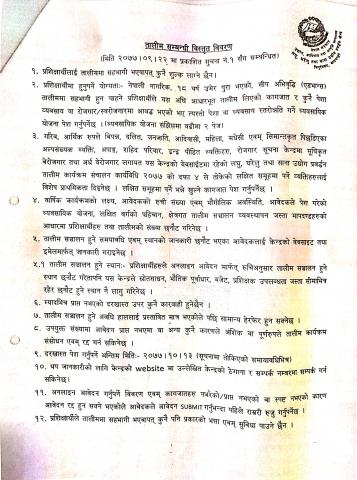 तालीम सम्बन्धी विस्तृत विवरण
(मिति २०७७।०९।२२ मा प्रकाशित सूचना नं.१ सँग सम्बन्धित)
१. प्रशिक्षार्थीलाई तालीममा सहभागी भएवापत् कुनै शुल्क लाग्ने छैन।
२. प्रशिक्षार्थीमा हुनुपर्ने योग्यताः- नेपाली नागरिक, १८ वर्ष उमेर पुरा भएको, सीप अभिवृद्धि (एडभान्स)
तालीममा सहभागी हुन चाहने प्रशिक्षार्थीले यस अघि आधारभूत तालीम लिएको कागजात र कुनै पेशा
व्यवसाय वा रोजगार/स्वरोजगारमा आवद्ध भएको भए त्यस्तो पेशा वा व्यवसाय स्तरोन्नति गर्ने व्यवसायिक
योजना पेश गर्नुपर्नेछ ।(व्यवसायिक योजना संक्षिप्तमा बढीमा २ पेज)
३. गरिब, आर्थिक रुपले बिपन्न, दलित, जनजाति, आदिवासी, महिला, मधेसी एवम् सिमान्तकृत पिछडिएका
अल्पसंख्यक व्यक्ति, अपाङ्ग, शहिद परिवार, द्वन्द्व पीडित व्यक्तिहरु, रोजगार सूचना केन्द्रमा सुचिकृत
बेरोजगार तथा अर्ध बेरोजगार लगायत यस केन्द्रको वेवसाईटमा रहेको लघु, घरेलु तथा साना उद्योग प्रवर्द्धन
तालीम कार्यक्रम संचालन कार्यविधि २०७७ को दफा ४ ले तोकेको लक्षित समूहमा पर्ने व्यक्तिहरुलाई
विशेष प्राथमिकता दिइनेछ । लक्षित समूहमा पर्ने भन्ने खुल्ने कागजात पेश गर्नुपर्नेछ ।
४. वार्षिक कार्यक्रमको लक्ष्य, आवेदकको रुची संख्या एवम् भौगोलिक अवस्थिति, आवेदकले पेश गरेको
व्यवसायिक योजना, लक्षित वर्गको पहिचान, क्षेत्रगत तालीम संचालन व्यवस्थापन जस्ता मापदण्डहरुको
आधारमा प्रशिक्षार्थी तथा तालीमको संख्या छनौट गरिनेछ ।
५. तालीम सञ्चालन हुने समयावधि एवम् स्थानको जानकारी छनौट भएका आवेदकलाई केन्द्रको वेवसाइट तथा
इमेलमार्फत् जानकारी गराइनेछ ।
५.१ तालीम सञ्चालन हुने स्थानः- प्रशिक्षार्थीहरुले अनलाइन आवेदन मार्फत् रुचिअनुसार तालीम सञ्चालन हुने
स्थान छनौट गरेतापनि यस केन्द्रले स्रोतसाधन, भौतिक पूर्वाधार, बजेट, प्रशिक्षक उपलब्धता जस्ता सीमाभित्र
रहेर छनौट हुने स्थान नै लागु गरिनेछ ।
६. म्यादभित्र प्राप्त नभएको दरखास्त उपर कुनै कारवाही हुनेछैन ।
७. तालीम सञ्चालन हुने अवधि हाललाई प्रस्तावित मात्र भएकोले पछि सामान्य हेरफेर हुन सक्नेछ ।
८. उपयुक्त संख्यामा आवेदन प्राप्त नभएमा वा अन्य कुनै कारणले आंशिक वा पूर्णरुपले तालीम कार्यक्रम
संसोधन एवम् रद्द गर्न सकिनेछ ।
९. दरखास्त पेश गर्नुपर्ने अन्तिम मितिः- २०७७।१०।१३ (सूचनामा तोकिएको समयावधिभित्र)
१०. थप जानकारीको लागि केन्द्रको website मा उल्लेखित केन्द्रको ठेगाना र सम्पर्क नम्बरमा सम्पर्क गर्न
सकिनेछ।
११. अनलाइन आवेदन गर्नुपर्ने विवरण एवम् कागजातहरु नभरेको/प्राप्त नभएको वा स्पष्ट नभएको कारण
आवेदन रद्द हुन सक्ने भएकोले आवेदकले आवेदन SUBMIT गर्नुभन्दा पहिले राम्ररी रुजु गर्नुपर्नेछ ।
१२. प्रशिक्षार्थीले तालीममा सहभागी भएबापत् कुनै पनि प्रकारको भत्ता एवम् सुविधा पाउने छैन ।